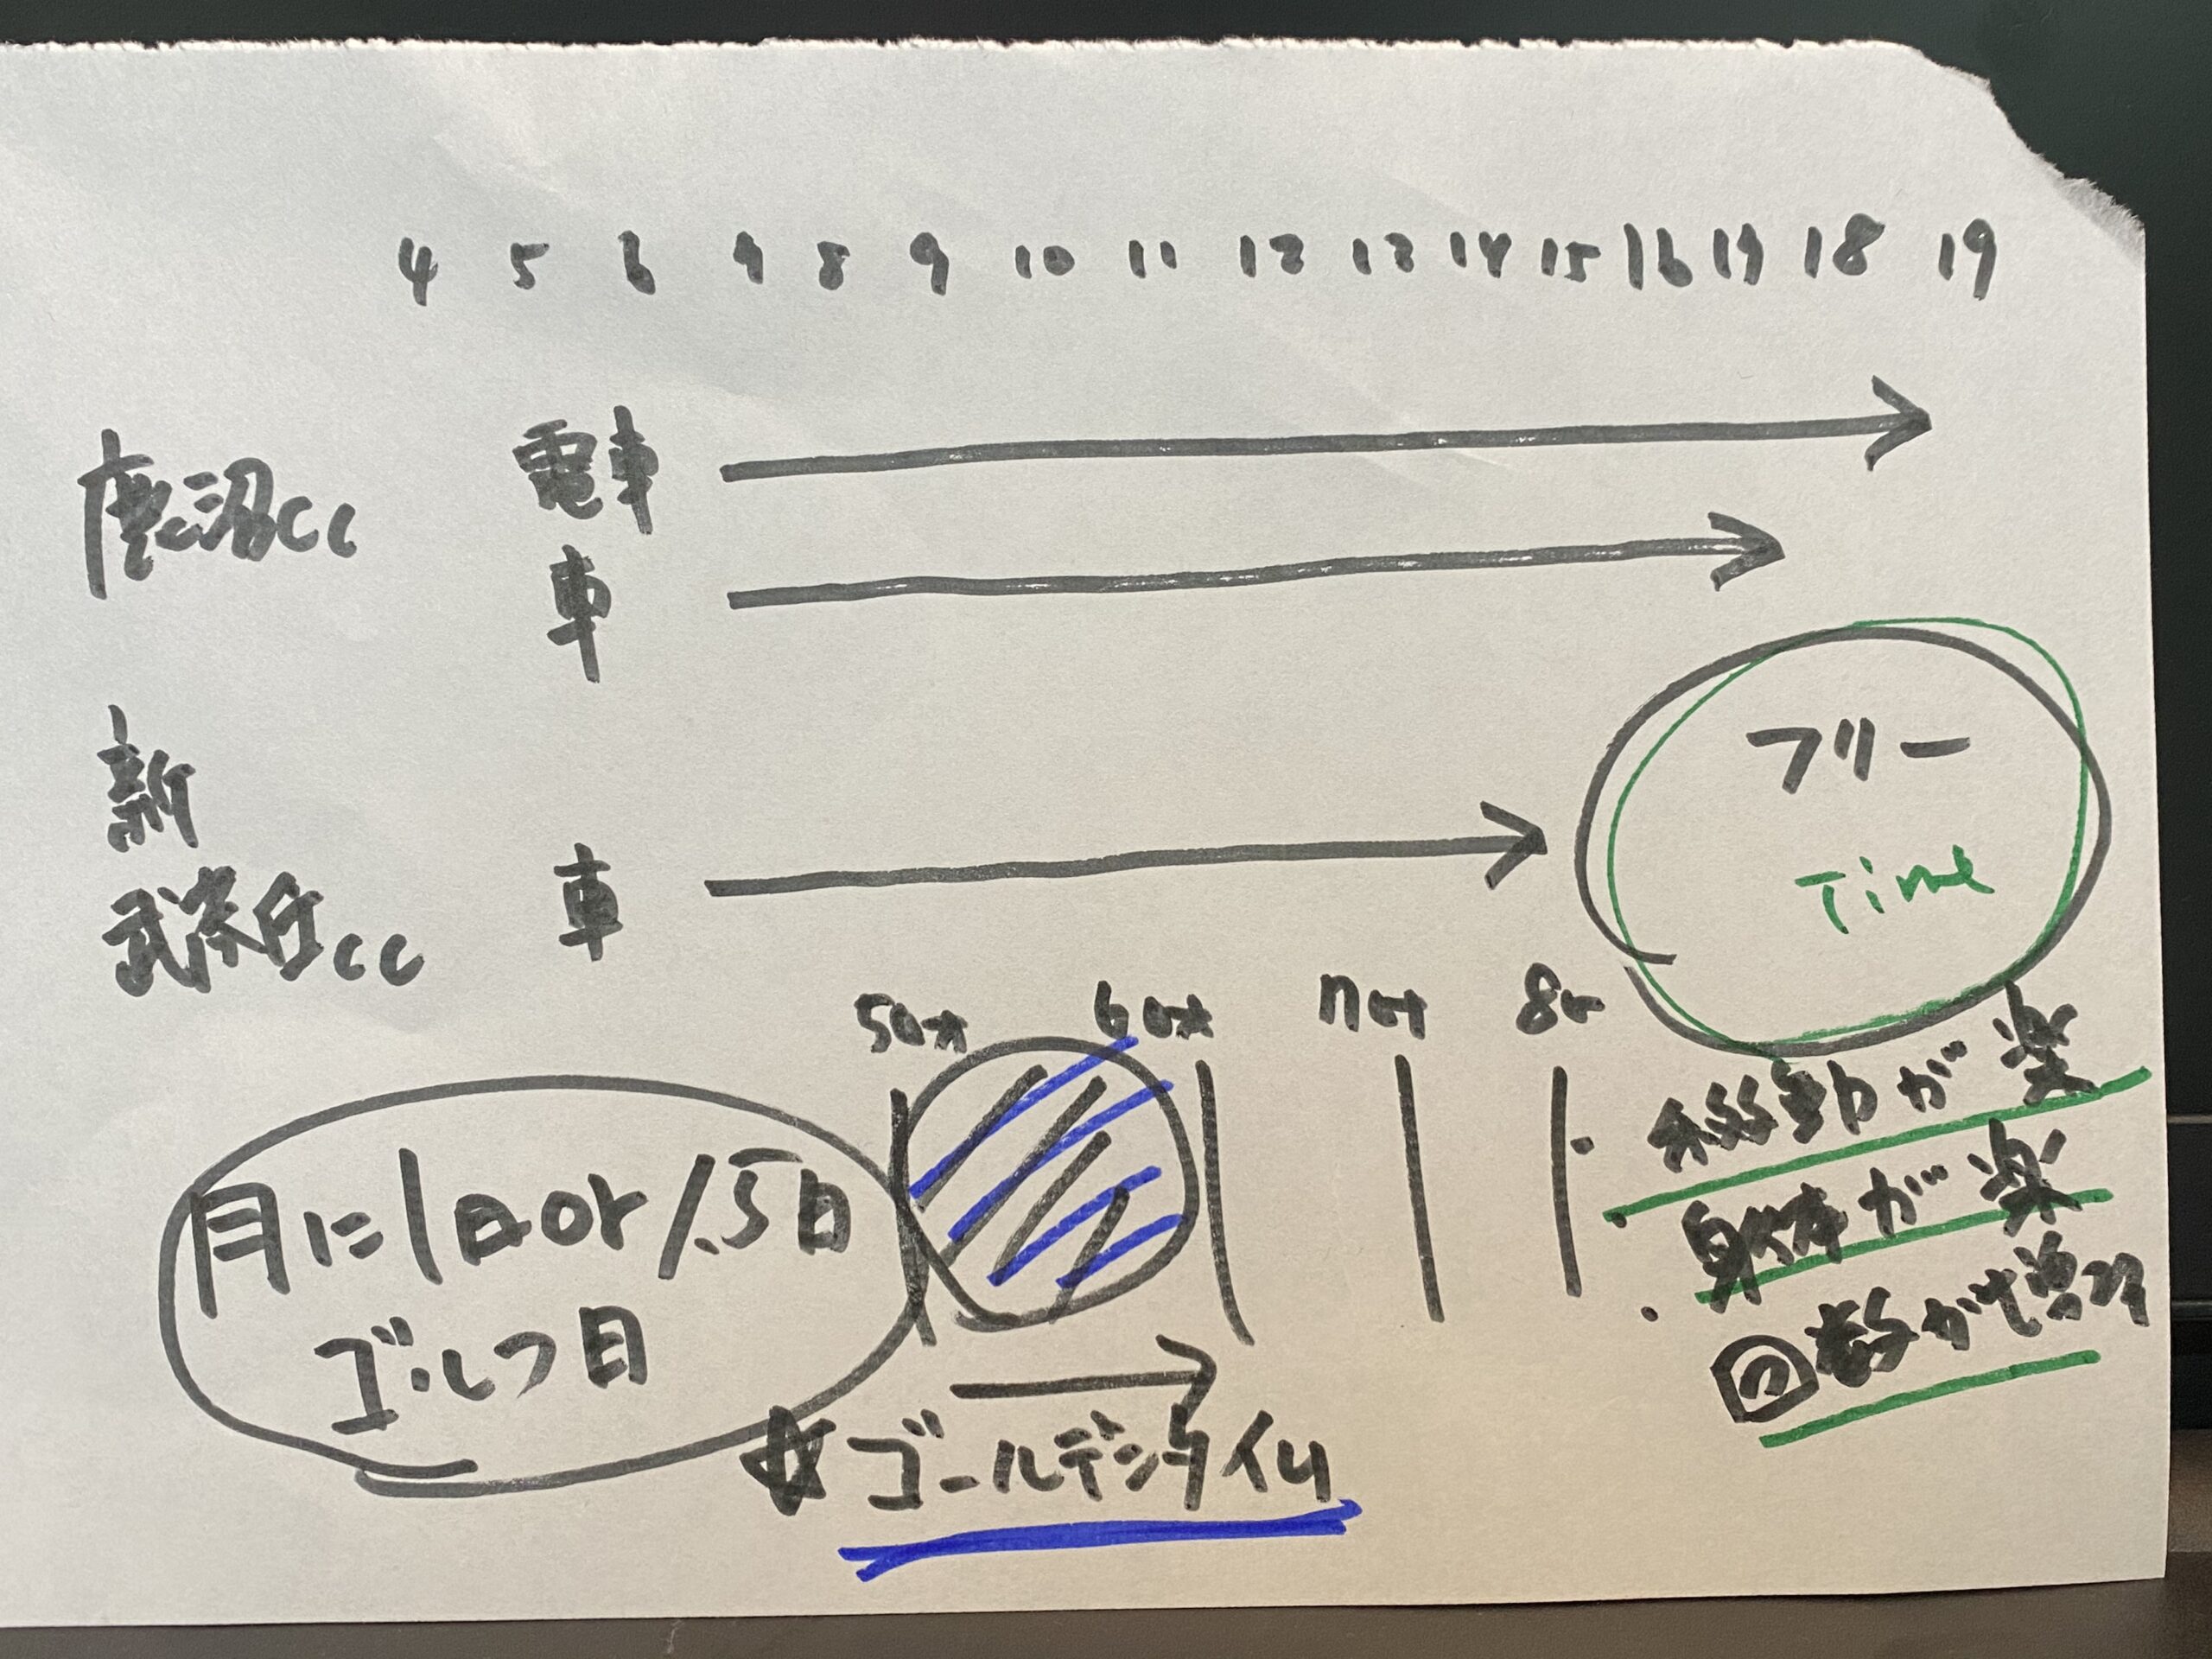 4 5 6 7 8 9 10 11 12 13 14 15 16 17 18 19
鹿沼CC 電車
車
新
武蔵丘CC 車
フリー
Time
50才 60才 70才 80
月に1日or1.5日
ゴルフ日
☆ゴールデンタイム
・移動が楽
・身体が楽
・回数が増加